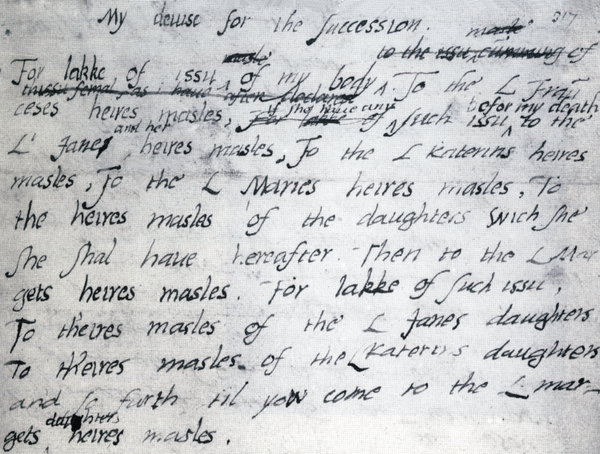 My deuise for the succession.
317
For lakke of issu of my body. To the L Frau
ceses heires masles, if she have any such issu befor my death to the
L' Janes and her heires masles, To the L Katerins heires
masles, To the L Maries heires masles, To
the heires masles of the daughters wich she
she shal haue hereafter. Then to the L Mar
gets heires masles. For lakke of such issu,
To th'eires masles of the L Janes daughters
To th'eires masles of the L Katerins daughters
and so forth til yow come to the L mar-
gets daughters heires masles.